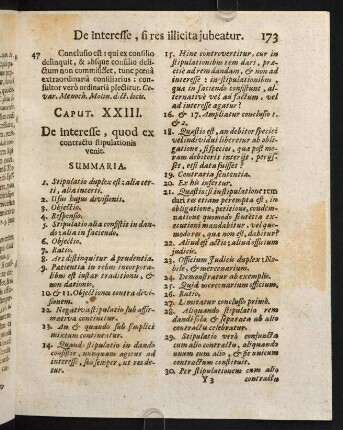 De interesse, si res illicita jubeatur. 173
47 Conclusio est: qui ex consilio
delinquit, & absque consilio deli-
ctum non commisisset, tunc pœnâ
extraordinariâ consiliarius: con-
sultor verò ordinariâ plectitur. Co-
var. Menoch. Molin. d. ct. locis.
CAPUT. XXIII.
De interesse, quod ex
contractu stipulationis
venit.
SUMMARIA.
1. Stipulatio duplex est: alia cer-
ti, alia incerti.
2. Usus hujus divisionis.
3. Objectio.
4. Responsio.
5. Stipulatio alia consistit in dan-
do: alia in faciendo.
6. Objectio.
7. Ratio.
8. Ars distinguitur à prudentia.
9. Patientia in rebus incorpora-
libus est instar traditionis, &
non dationis.
10. & 11. Objectiones contra divi-
sionem.
12. Negativa stipulatio sub affir-
mativa continetur.
13. An & quando sub simplici
mixtum contineatur.
14. Quando stipulatio in dando
consistit, nunquam agitur ad
interesse, sed semper, ut res de-
tur.
15. Hinc controvertitur, cur in
stipulationibus rem dari, præ-
cisè ad rem dandam, & non ad
interesse: in stipulationibus,
qua in faciendo consistunt, al-
ternativè vel ad factum, vel
ad interesse agatur?
16. & 17. Ampliatur conclusio 1.
& 2.
18. Quæstio est, an debitor speciei
vel individui liberetur ab obli-
gatione, si species, quæ post mo-
ram debitoris interiit, peri-
set, etsi data fuisset?
19. Contraria sententia.
20. Ex his infertur.
21. Quæstio: si in stipulatione rem
dari res etiam perempta est, in
obligatione, petitione, condem-
natione quomodo sententia exe-
cutioni mandabitur, vel quo-
modo res, quæ non est, debetur?
22. Aliud est actio: aliud officium
judicis.
23. Officium Judicis duplex: No-
bile, & mercenarium.
24. Demonstratur ab exemplis.
25. Quid mercenarium officium.
26. Ratio.
27. Limitatur conclusio primò.
28. Aliquando stipulatio rem
dandi sola & separata ab alio
contractu celebratur.
29. Stipulatio verò conjuncta
cum alio contractu, aliquando
unum cum alio, & sic unicum
contractum constituit.
30. Per stipulationem cum alio
Y 3 contractu